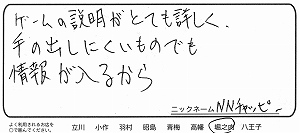 ゲームの説明がとても詳しく、
手の出しにくいものでも
情報が入るから
ニックネーム NNチャッピー
よく利用されるお店を
○で囲んでください。
立川 小作 羽村 昭島 青梅 高幡 堀之内 八王子